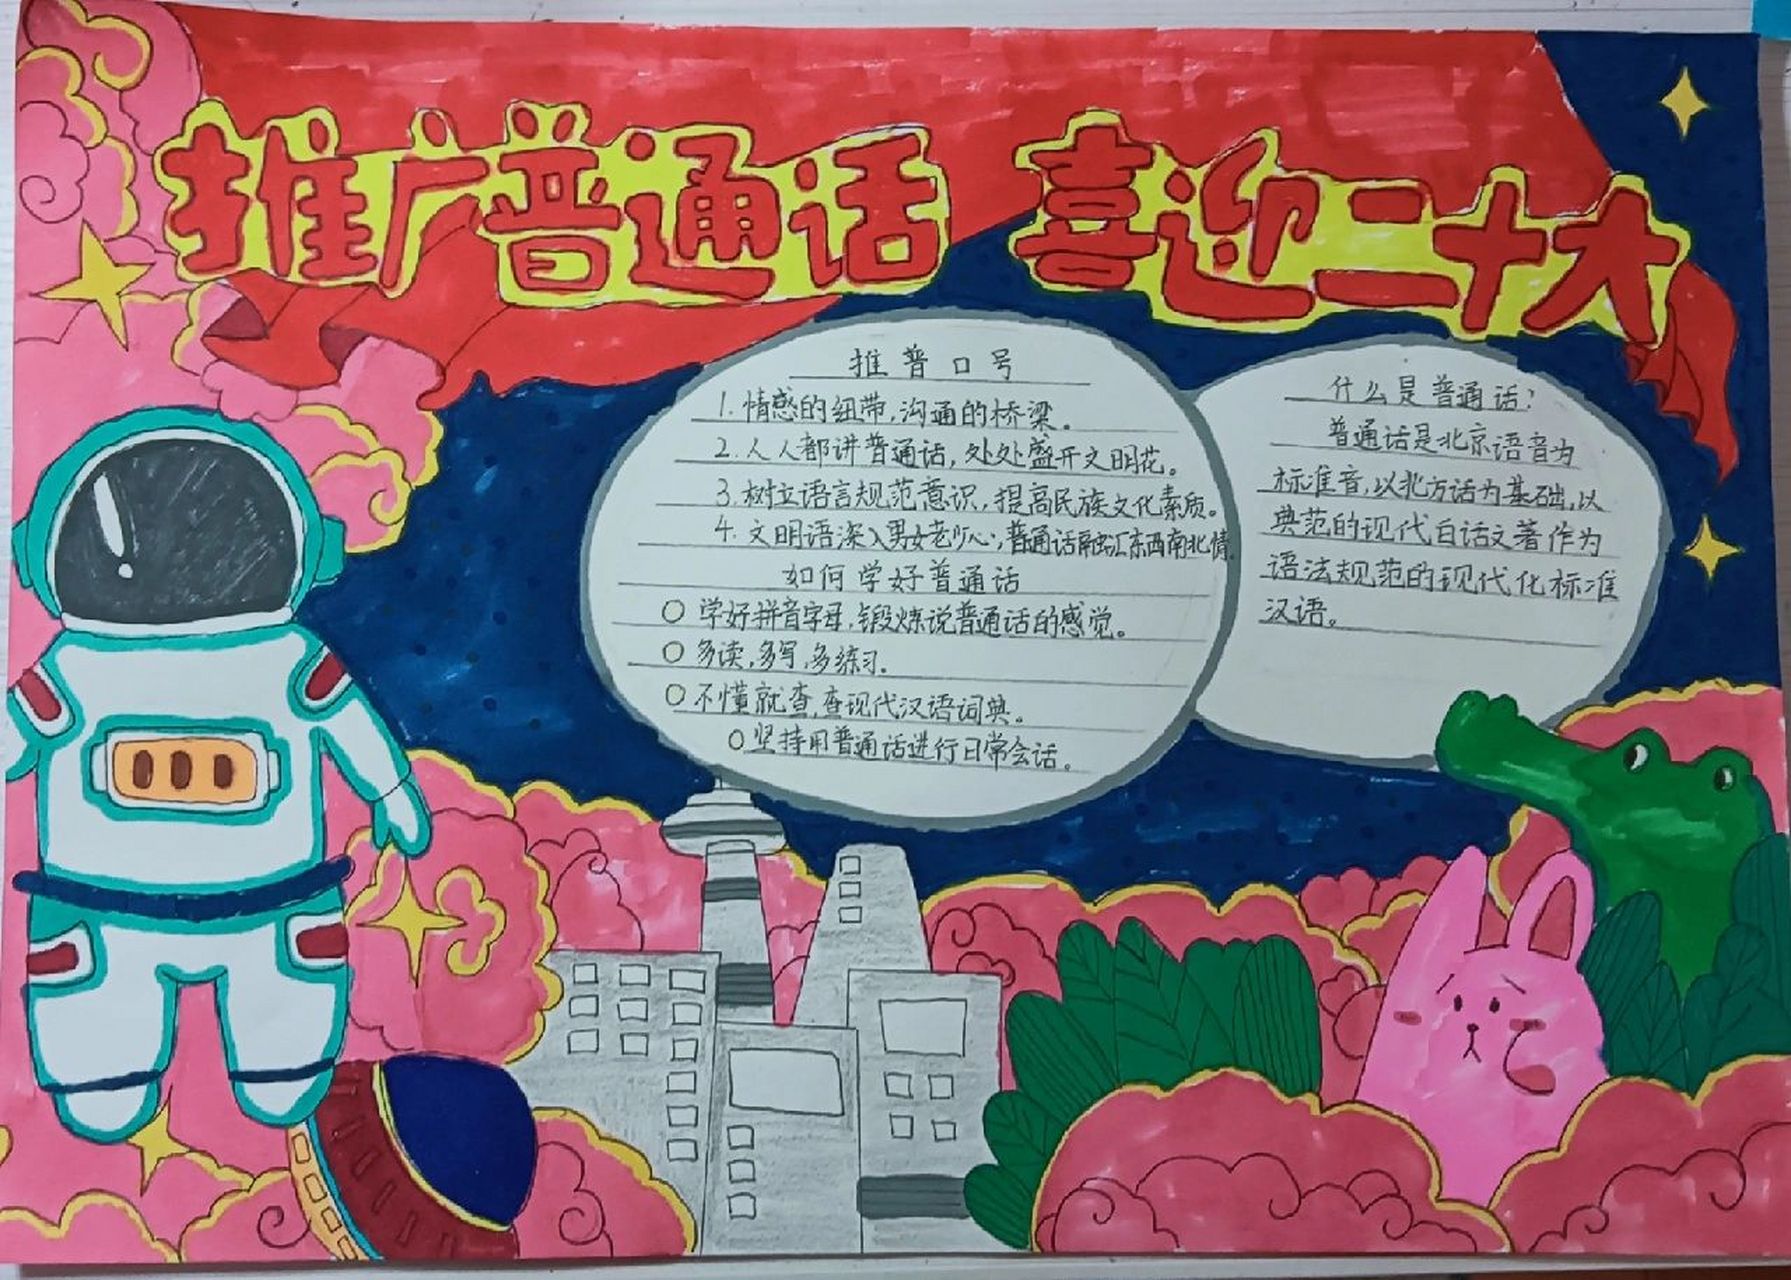 推广普通话 喜迎二十大
推普口号
1.情感的纽带,沟通的桥梁。
2.人人都讲普通话,处处盛开文明花。
3.树立语言规范意识,提高民族文化素质。
4.文明语深入男女老少心,普通话融汇东西南北情
如何学好普通话
○ 学好拼音字母,锻炼说普通话的感觉。
○ 多读,多写,多练习.
○ 不懂就查,查现代汉语词典。
○坚持用普通话进行日常会话。
什么是普通话?
普通话是北京语音为
标准音,以北方话为基础,以
典范的现代白话文著作为
语法规范的现代化标准
汉语。